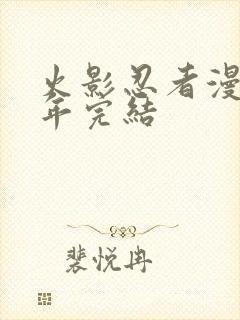 火影忍者漫
年完結
裴悦冉